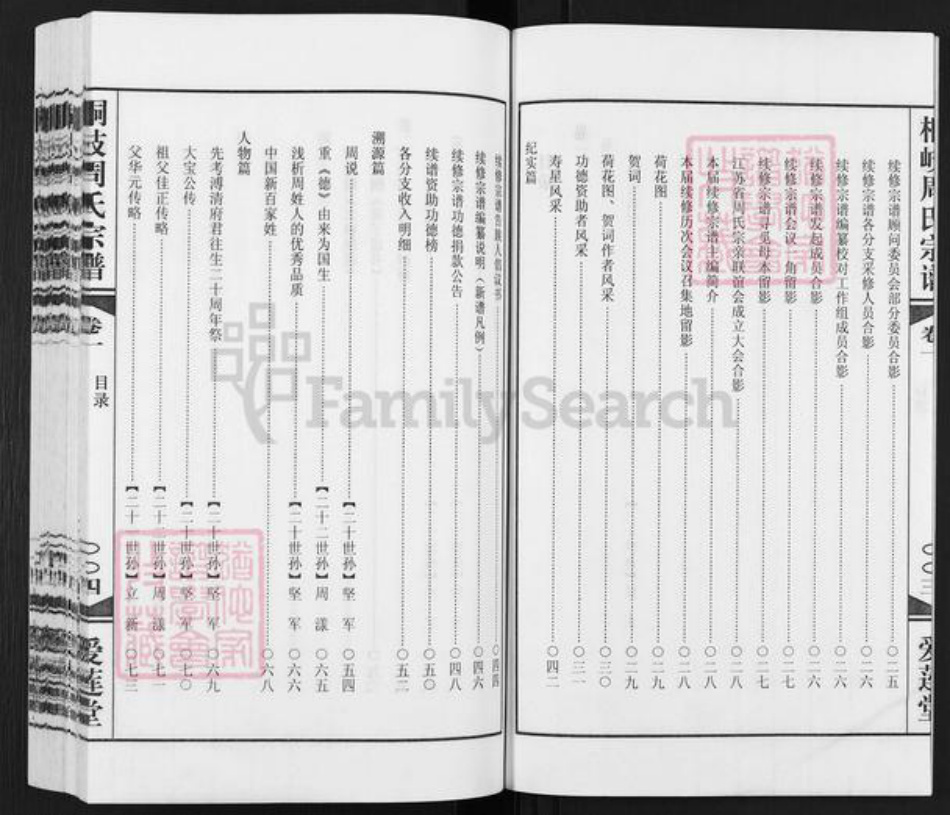 周氏宗谱
卷一
〇〇三
爱莲堂
续修宗谱顾问委员会部分委员合影 〇二五
续修宗谱各分支采修人员合影 〇二六
续修宗谱编纂校对工作组成员合影 〇二六
续修宗谱发起成员合影 〇二六
续修宗谱会议一角留影 〇二七
续修宗谱寻觅母本留影 〇二七
江苏省周氏宗亲联谊会成立大会合影 〇二八
本届续修宗谱主编简介 〇二八
本届续修历次会议召集地留影 〇二八
荷花图 〇二九
贺词 〇二九
荷花图、贺词作者风采 〇三〇
功德资助者风采 〇三一
寿星风采 〇四二
纪实篇
续修宗谱告族人倡议书 〇四四
续修宗谱编纂说明（新谱凡例） 〇四六
续修宗谱功德捐款公告 〇四八
续谱资助功德榜 〇五〇
各分支收入明细 〇五二
溯源篇
周说 【二十世孙】坚 军 〇五四
重《德》由来为国生 【二十二世孙】周 漾 〇六五
浅析周姓人的优秀品质 【二十世孙】坚 军 〇六六
中国新百家姓 〇六八
人物篇
先考溥清府君往生二十周年祭 【二十世孙】坚 军 〇六九
大宝公传 【二十世孙】坚 军 〇七〇
祖父佳正传略 【二十二世孙】周 漾 〇七一
父华元传略 【二十一世孙】立 新 〇七三
周氏宗谱
卷一
目录
〇〇四
爱莲堂
FamilySearch